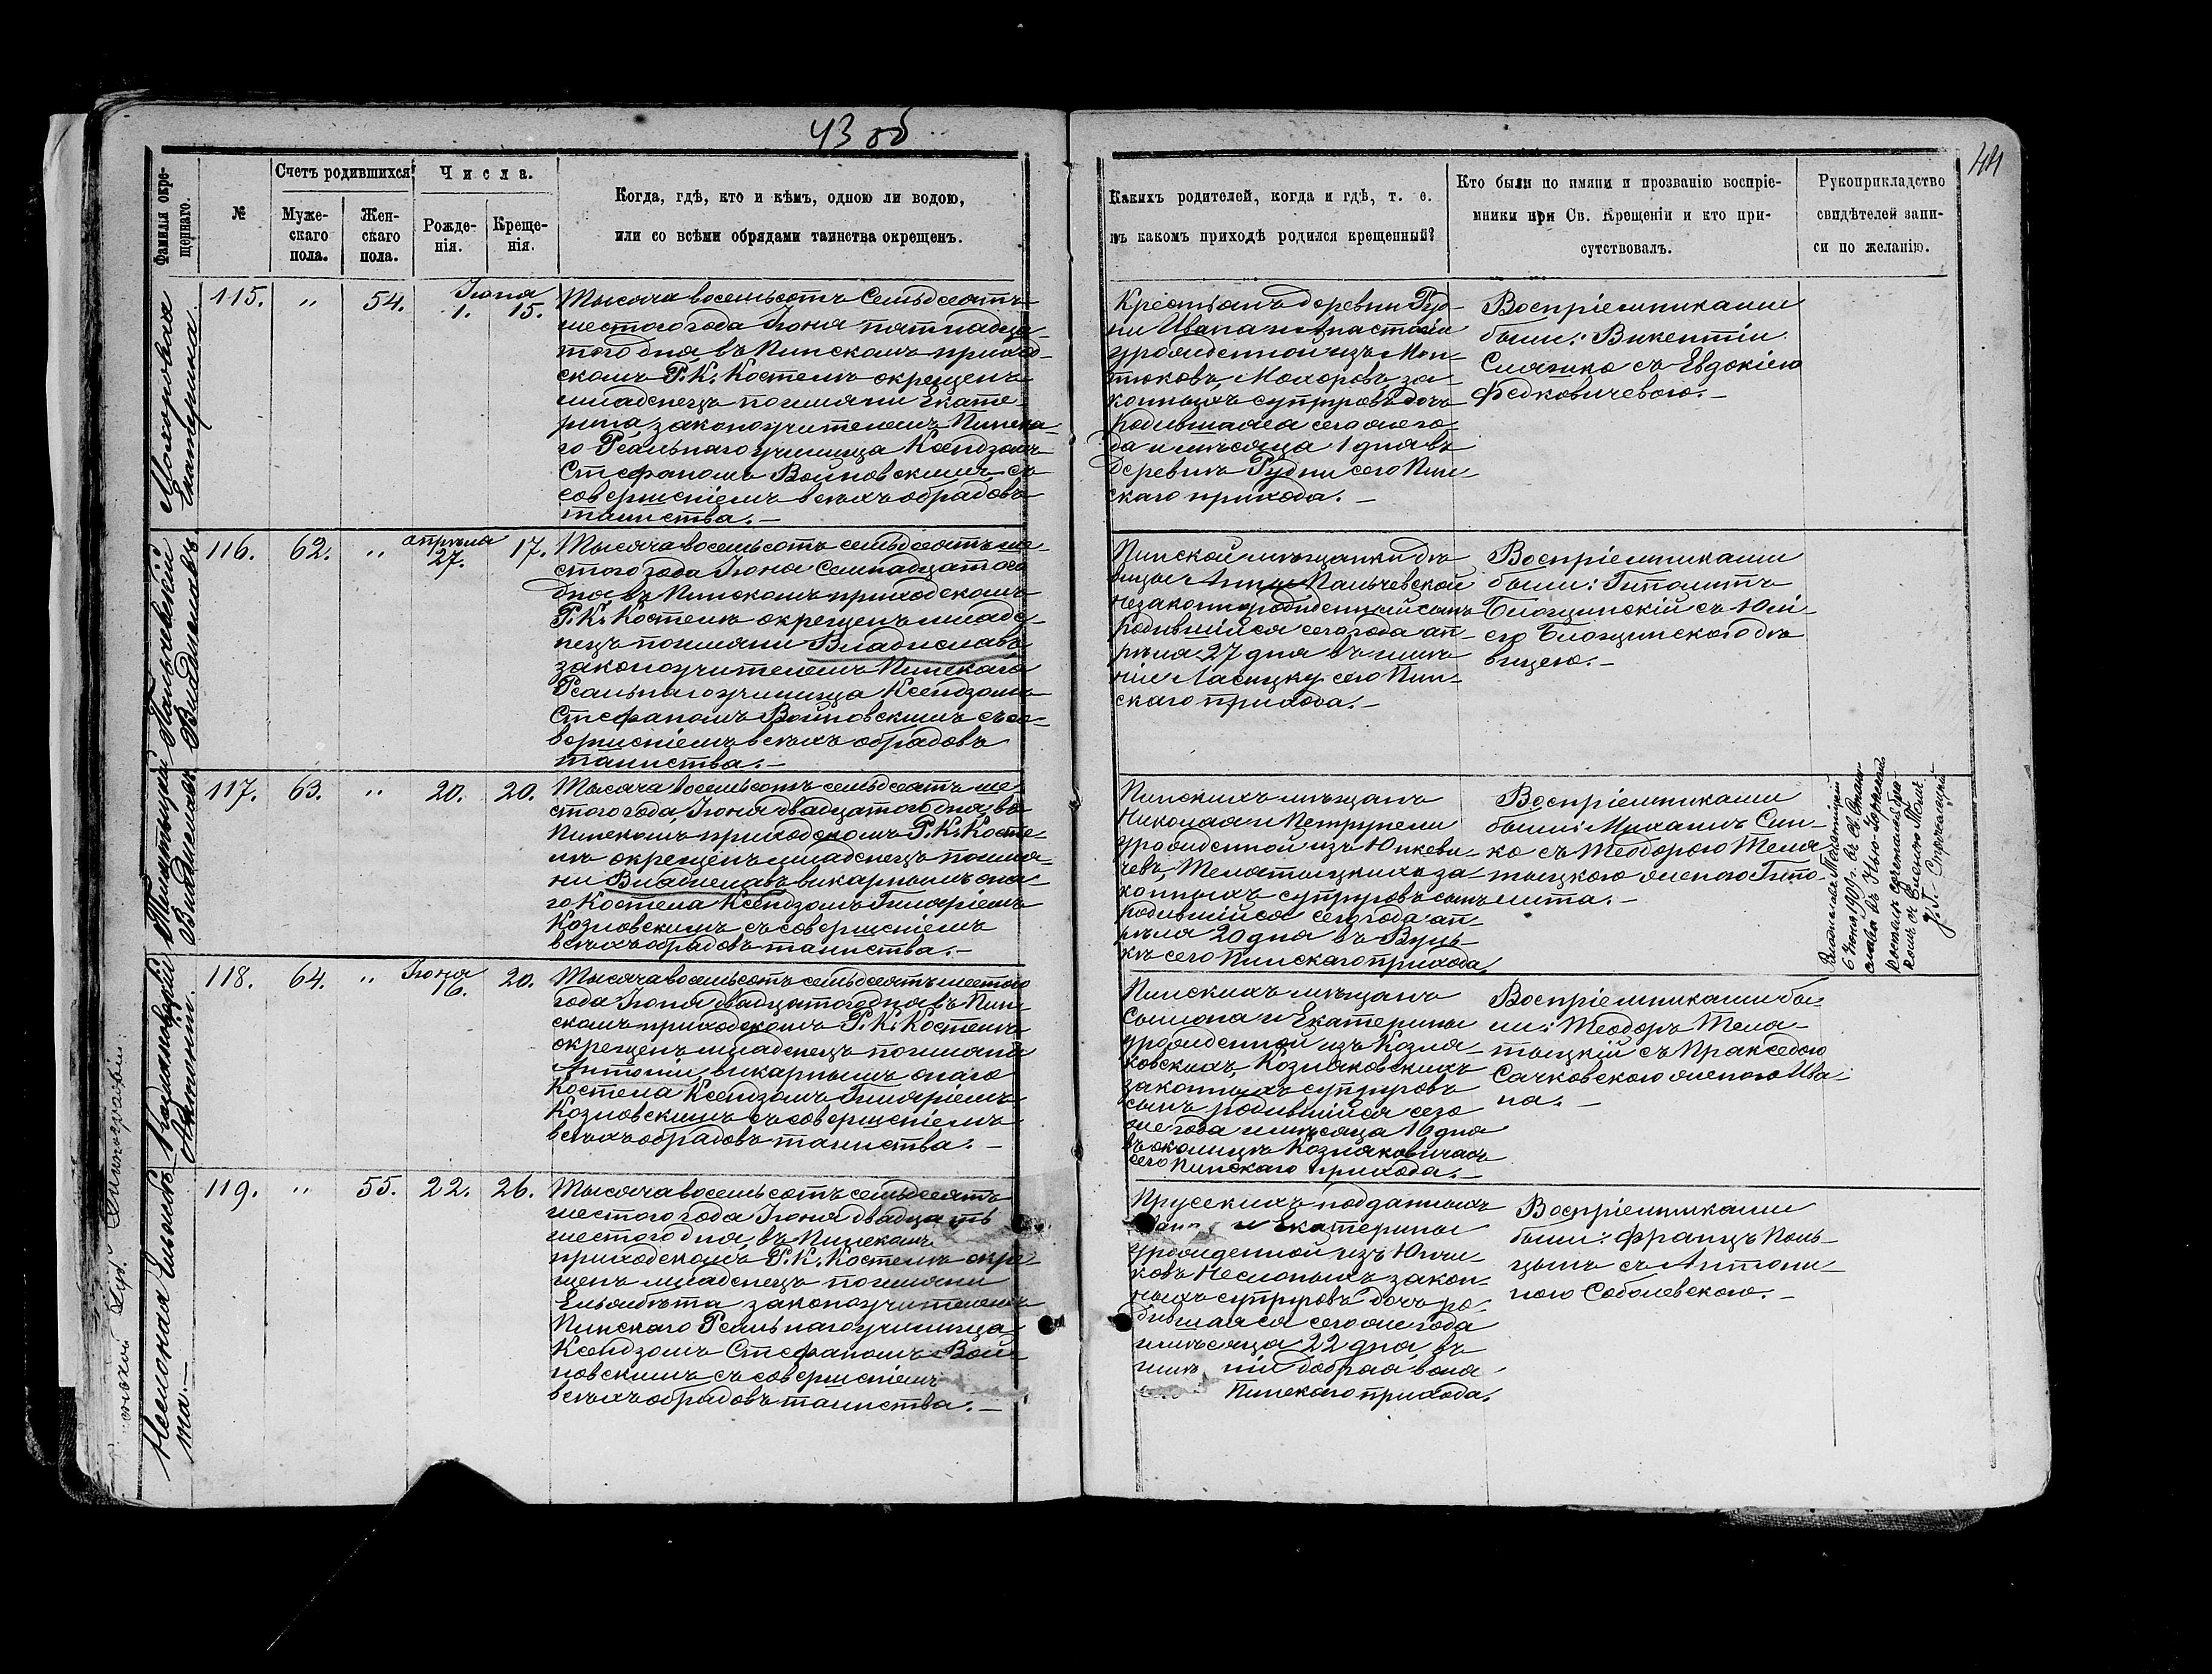 43 об
44
Фамилія окре-
щеннаго.
№
Счетъ родившихся
Муже-
скаго
пола.
Жен-
скаго
пола.
Числа.
Рожде-
нія.
Креще-
нія.
Когда, гдѣ, кто и кѣмъ, одною ли водою,
или со всѣми обрядами таинства окрещенъ.
Какихъ родителей, когда и гдѣ, т. е.
въ какомъ приходѣ родился крещенный?
Кто были по имяни и прозванію воспріе-
мники при Св. Крещеніи и кто при-
сутствовалъ.
Рукоприкладство
свидѣтелей запи-
си по желанію.
Екатерина.
115. " 54. Іюня 1. 15.
Тысяча восемьсотъ семьдесятъ
шестого года Іюня пятнадца-
того дня въ Пинскомъ приход-
скомъ Р. К. Костелѣ окрещенъ
младенецъ по имяни Екате-
рина, законоучителемъ Пинска-
го Реальнаго училища Ксендзомъ
Стефаномъ Войновскимъ съ
совершеніемъ всѣхъ обрядовъ
таинства.—
Крестьянъ деревни Руд-
ни Ивана и Анастасіи
урожденной изъ Мон-
тюковъ, Мохоровъ за-
конныхъ супруговъ дочь
родившаяся сего же го-
да и мѣсяца 1 дня въ
деревнѣ Рудни сего Пин-
скаго прихода.—
Воспріемниками
были: Викентій
съ Евдокіею
Федковичевою.—
Пальчевскій
Владиславъ
116. 62. " апрѣля 27. 17.
Тысяча восемьсотъ семьдесятъ ше-
стого года Іюня семнадцатого
дня въ Пинскомъ приходскомъ
Р. К. Костелѣ окрещенъ младе-
нецъ по имяни Владиславъ
законоучителемъ Пинскаго
Реальнаго училища Ксендзомъ
Стефаномъ Войновскимъ съ со-
вершеніемъ всѣхъ обрядовъ
таинства.—
Пинской мѣщанки дѣ-
вицы Анны Пальчевской
незаконнорожденный сынъ
родившійся сего года ап-
рѣля 27 дня въ имѣ-
ніи Ласицку сего Пин-
скаго прихода.—
Воспріемниками
были: Гиполитъ
съ Юлі-
ею дѣ-
вицею.—
Телятыцкій
Владиславъ
117. 63. " 20. 20.
Тысяча восемьсотъ семьдесятъ ше-
стого года, Іюня двадцатого дня, въ
Пинскомъ приходскомъ Р. К. Косте-
лѣ окрещенъ младенецъ по имя-
ни Владиславъ викарнымъ она-
го Костела Ксендзомъ Гиляріемъ
Козловскимъ съ совершеніемъ
всѣхъ обрядовъ таинства.—
Пинскихъ мѣщанъ
Николая и Петрунели
урожденной изъ Юнкеви-
чевъ, Телятыцкихъ за-
конныхъ супруговъ сынъ
родившійся сего года ап-
рѣля 20 дня въ Вуль-
кѣ сего Пинскаго прихода.
Воспріемниками
были: Михаилъ Син-
ко съ Теодорою Теля-
тыцкою женою Гипо-
лита.—
Владиславъ Телятыцкій
6 Іюня 1909 г. въ св. Стани-
слава въ Нью-Іоркскомъ
костелѣ сочетался бра-
комъ съ
Козляковскій
Антоній.
118. 64. " Іюня 16. 20.
Тысяча восемьсотъ семьдесятъ шестого
года Іюня двадцатого дня въ Пин-
скомъ приходскомъ Р. К. Костелѣ
окрещенъ младенецъ по имяни
Антоній, викарнымъ онаго
Костела Ксендзомъ Гиляріемъ
Козловскимъ съ совершеніемъ
всѣхъ обрядовъ таинства.—
Пинскихъ мѣщанъ
Симона и Екатерины
урожденной изъ Козля-
ковскихъ, Козляковскихъ
законныхъ супруговъ
сынъ родившійся сего
же года и мѣсяца 16 дня
въ околицѣ Козляковичахъ
сего Пинскаго прихода.—
Воспріемниками бы-
ли: Теодоръ Теля-
тыцкій съ Праксѣдою
Сачковскою женою Ива-
на.—
119. " 55. 22. 26.
Тысяча восемьсотъ семьдесятъ
шестого года Іюня двадцать
шестого дня, въ Пинскомъ
приходскомъ Р. К. Костелѣ окре-
щенъ младенецъ по имяни
Ельжбѣта законоучителемъ
Пинскаго Реальнаго училища
Ксендзомъ Стефаномъ Вой-
новскимъ съ совершеніемъ
всѣхъ обрядовъ таинства.—
Прусскихъ подданныхъ
и Екатерины
урожденной изъ
закон-
ныхъ супруговъ дочь ро-
дившаяся сего же года
и мѣсяца 22 дня, въ
имѣніи Добрая воля
Пинскаго прихода.
Воспріемниками
были: Францъ Поль-
съ Антони-
ною Соболевскою.—